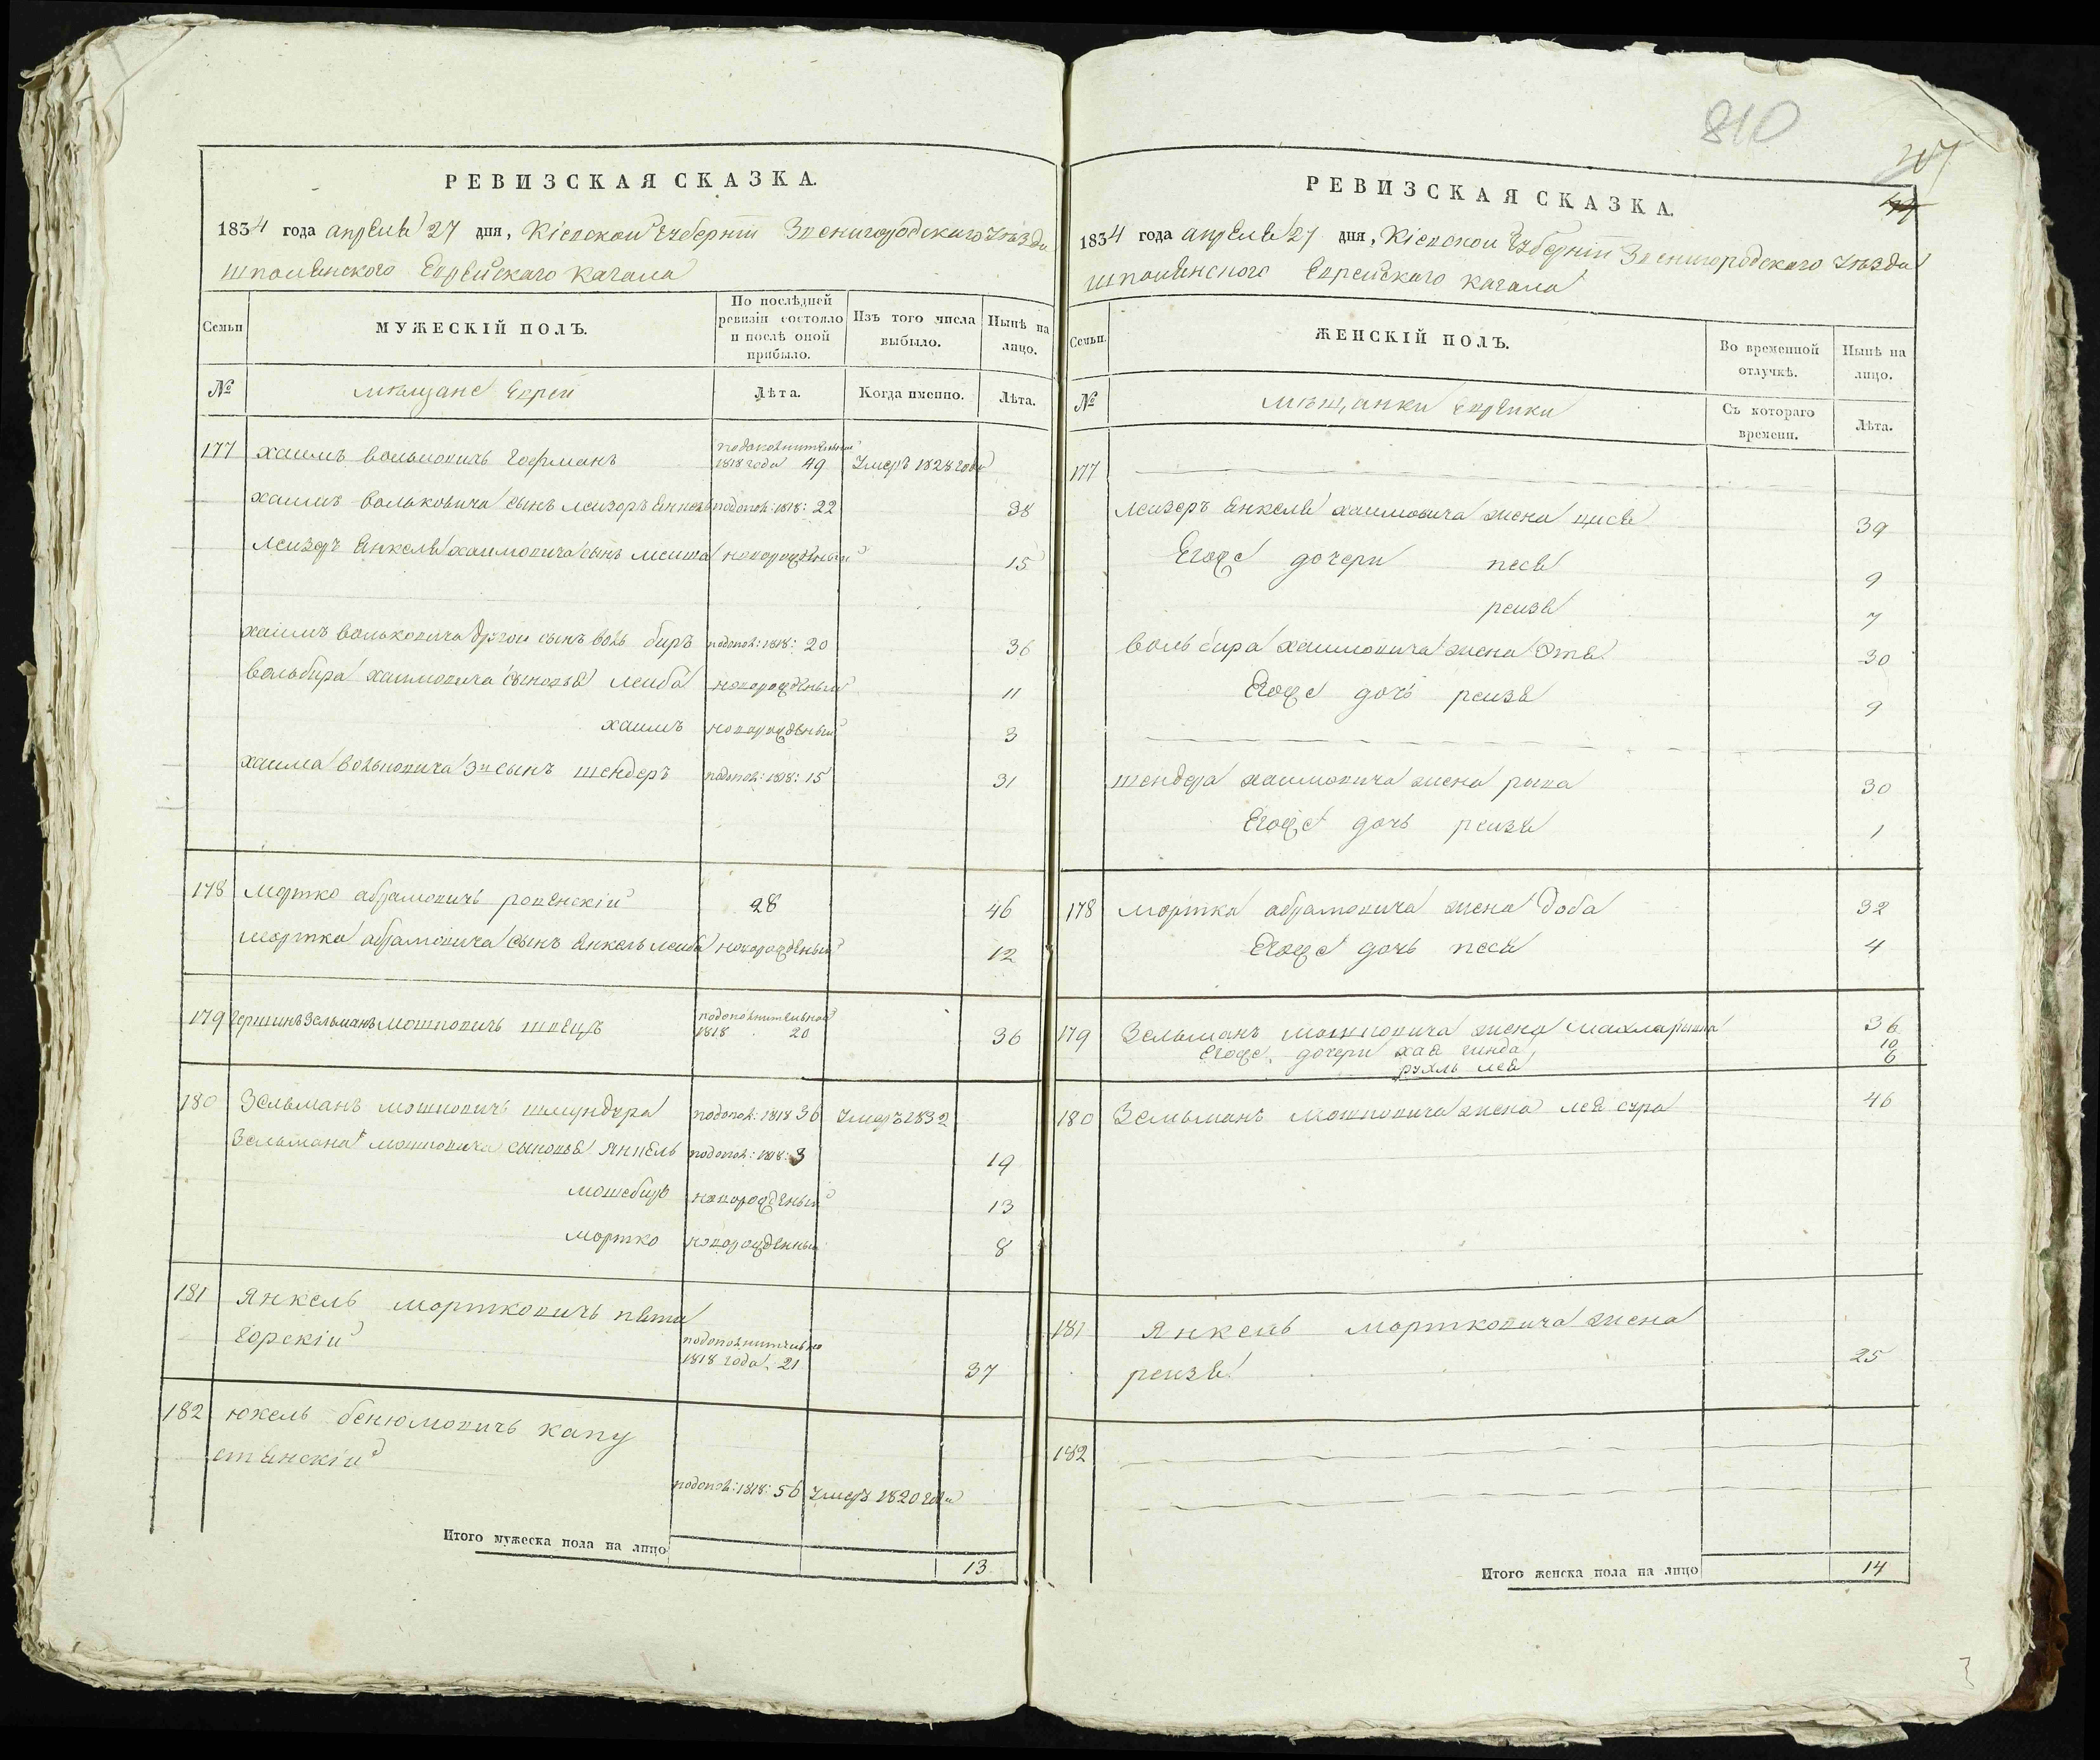 810
РЕВИЗСКАЯ СКАЗКА.
1834 года апреля 27 дня, Кіевской губерніи Звенигородского уѣзда
шполянского Еврейскаго кагала
Семьи
МУЖЕСКІЙ ПОЛЪ.
По послѣдней ревизіи состояло и послѣ оной прибыло.
Изъ того числа выбыло.
Нынѣ на лицо.
№
мѣщане Евреи
Лѣта.
Когда именно.
Лѣта.
177 хаимъ вольковичь гофманъ подополнительной 1818 года 49 Умеръ 1828 года
хаимъ вольковича сынъ лейзоръ янкель подопол: 1818: 22 38
лейзеръ янкеля хаимовича сынъ новорожденный 15
хаимъ вольковича другой сынъ воль беръ подопол: 1818: 20 36
вольбера хаимовича сыновья лейба новорожденый 11
хаимъ новорожденый 3
хаима вольковича 3й сынъ шендеръ подопол: 1818: 15 31
178 мортко абрамовичь ровенскій 28 46
мортка абрамовича сынъ янкель лейба новорожденый 12
179 гершинъ Зельманъ мошковичь швецъ подополнительной 1818 20 36
180 Зельманъ мошковичь подопол: 1818 36 Умеръ 1832
Зельмана мошковича сыновья янкель подопол: 1818: 3 19
мошеберъ новорожденый 13
мортко новорожденый 8
181 янкель мортковичь пяти
горскій подополнительно 1818 года 21 37
182 юкель бенюмовичь капу
стянскій
подопол: 1818: 56 умеръ 1820 года
Итого мужеска пола на лицо 13
РЕВИЗСКАЯ СКАЗКА.
1834 года апреля 27 дня, Кіевской губерніи Звенигородского уѣзда
шполянского Еврейскаго кагала
Семьи.
ЖЕНСКІЙ ПОЛЪ.
Во временной отлучкѣ.
Нынѣ на лицо.
№
мѣщанки еврейки
Съ котораго времени.
Лѣта.
177
лейзеръ янкеля хаимовича жена 39
Егоже дочери песя 9
рейзя 7
воль бера хаимовича жена Этя 30
Егоже дочь рейзя 9
шендера хаимовича жена рыва 30
Егоже дочь рейзя 1
178 мортка абрамовича жена доба 32
Егоже дочь песя 4
179 Зельманъ мошковича жена 36
Егоже дочери хая гинда 10
рухль лея 6
180 Зельманъ мошковича жена лея сура 46
181 янкель мортковича жена
рейзя 25
182
Итого женска пола на лицо 14